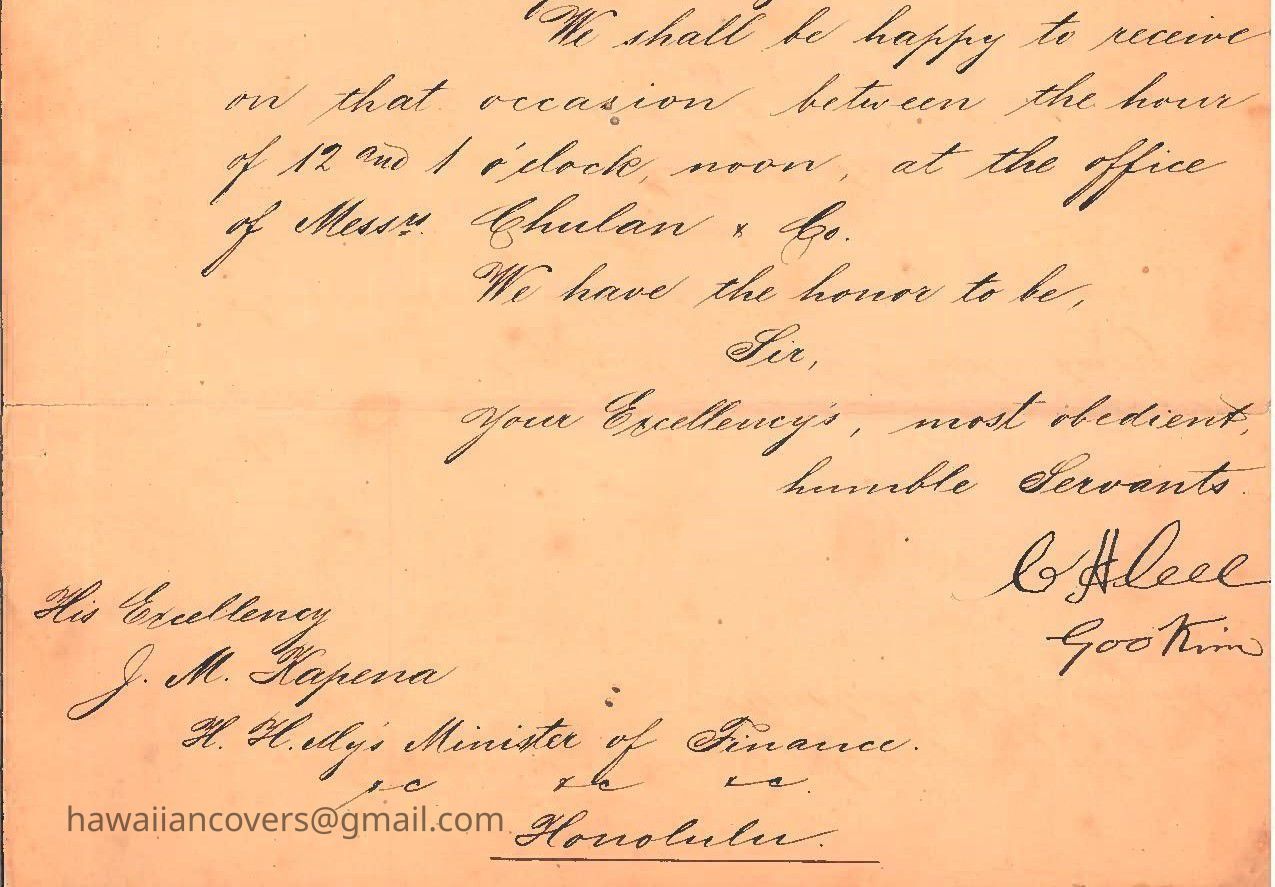 We shall be happy to receive
on that occasion between the hour
of 12 and 1 o'clock, noon, at the office
of Messrs. Chulan & Co.
We have the honor to be,
Sir,
Your Excellency's, most obedient,
humble Servants.
Goo Kim
His Excellency
J. M. Kapena
H. H. My's Minister of Finance.
&c &c &c.
hawaiiancovers@gmail.com
Honolulu.